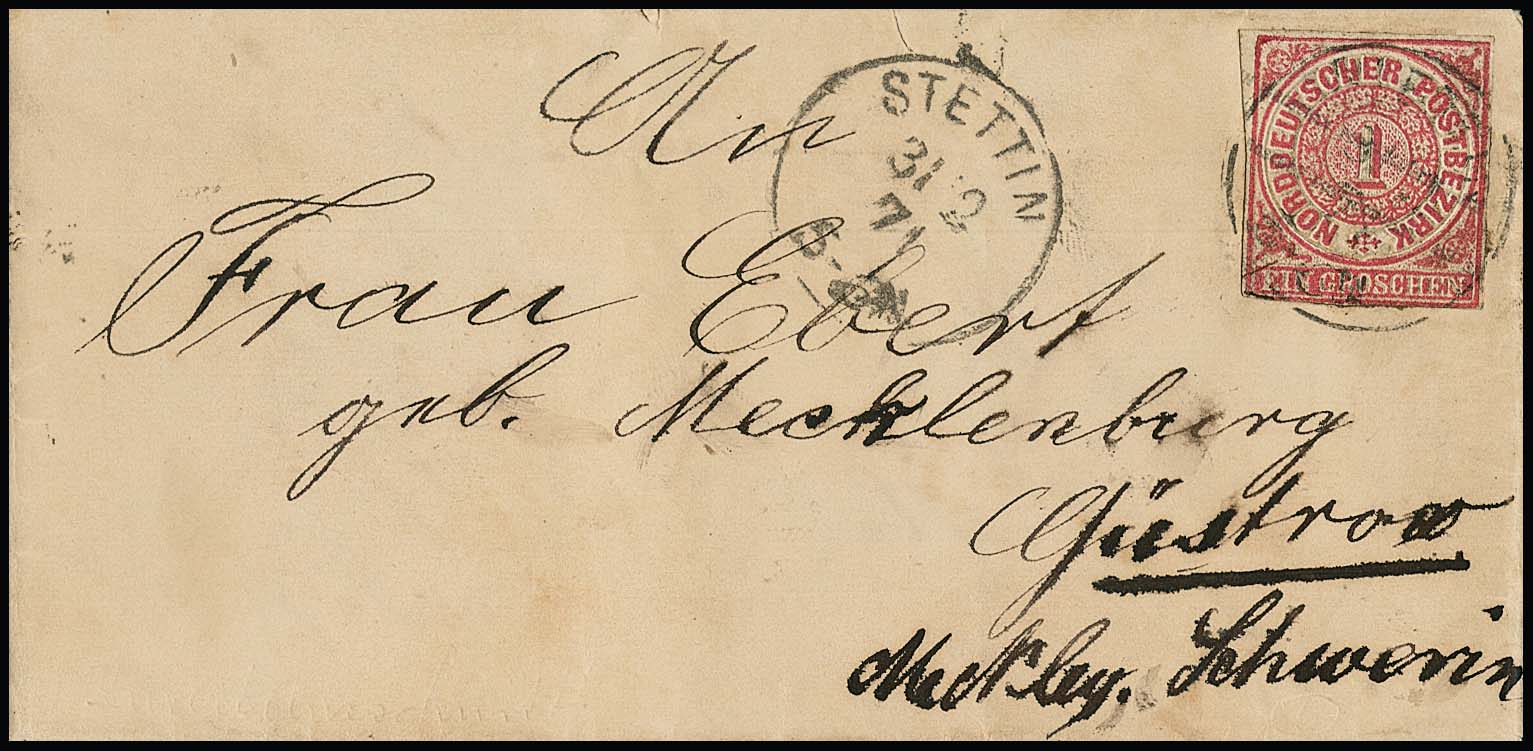 An
Frau Ebert
geb. Mecklenburg
Güstrow
Mecklbg. Schwerin
STETTIN
31 12
71
5-6N
NORDDEUTSCHER POSTBEZIRK
1
EIN GROSCHEN